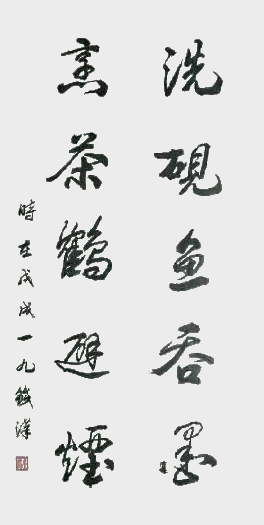 洗硯魚吞墨
烹茶鶴避煙
時在戊戌一九